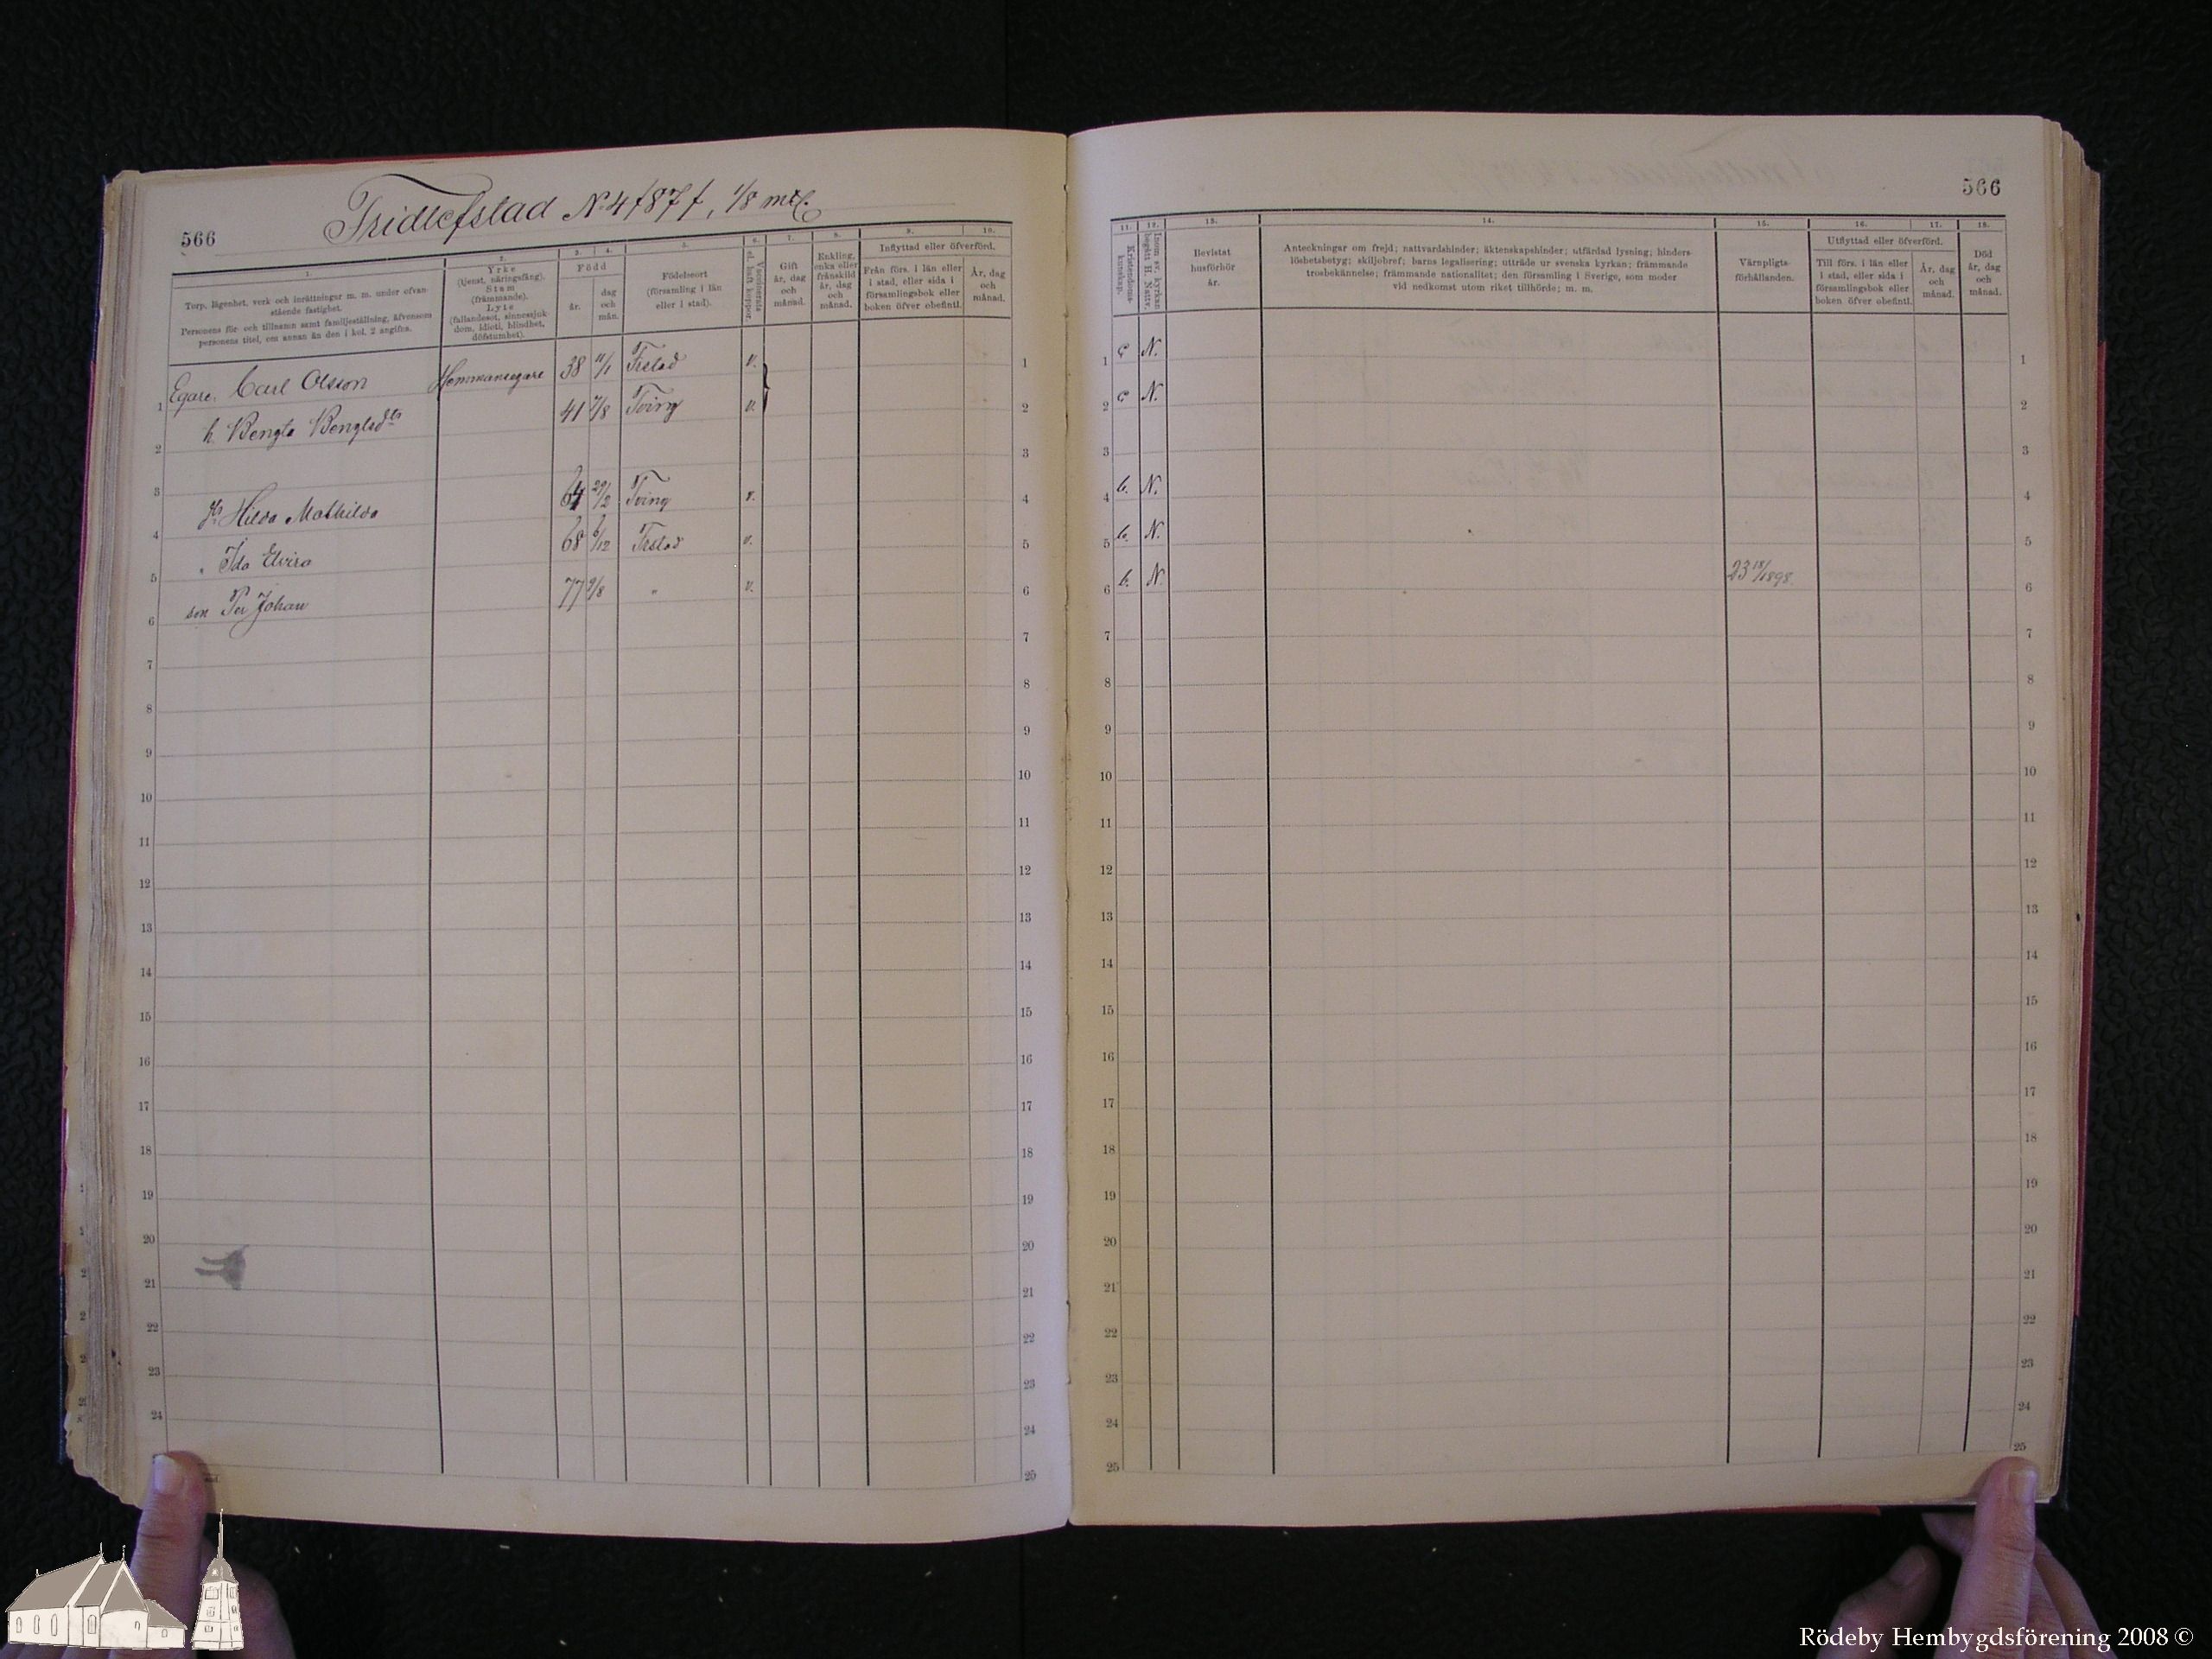 566
Fridlefstad No 4 f 87 f, 1/8 mtl.
1.
Torp, lägenhet, verk och inrättningar m. m. under ofvan-
stående fastighet.
Personens för- och tillnamn samt familjeställning, äfvensom
personens titel, om annan än den i kol. 2 angifna.
2.
Yrke
(tjenst, näringsfång).
Stam
(främmande).
Lyte
(fallandesot, sinnessjuk-
dom, idioti, blindhet,
döfstumhet).
3. 4.
Född
år.
dag
och
mån.
5.
Födelseort
(församling i län
eller i stad).
6.
Vaccinerats
el. haft koppor.
7.
Gift
år, dag
och
månad.
8.
Enkling,
enka eller
frånskild
år, dag
och
månad.
9. 10.
Inflyttad eller öfverförd.
Från förs. i län eller
i stad, eller sida i
församlingsbok eller
boken öfver obefintl.
År, dag
och
månad.
Egare. Carl Olsson Hemmansegare 38 11/1 Frstad v.
h. Bengta Bengtsdtr 41 7/8 Tving v.
dr Hilda Mathilda 64 29/2 Tving v.
" Ida Elvira 68 6/12 Frstad v.
son Per Johan 77 9/8 " v.
1
2
3
4
5
6
7
8
9
10
11
12
13
14
15
16
17
18
19
20
21
22
23
24
25
566
11.
Kristendoms-
kunskap.
12.
Inom sv. kyrkan
begått H. Nattv.
13.
Bevistat
husförhör
år.
14.
Anteckningar om frejd; nattvardshinder; äktenskapshinder; utfärdad lysning; hinders-
löshetsbetyg; skiljobref; barns legalisering; utträde ur svenska kyrkan; främmande
trosbekännelse; främmande nationalitet; den församling i Sverige, som moder
vid nedkomst utom riket tillhörde; m. m.
15.
Värnpligts-
förhållanden.
16. 17.
Utflyttad eller öfverförd.
Till förs. i län eller
i stad, eller sida i
församlingsbok eller
boken öfver obefintl.
År, dag
och
månad.
18.
Död
år, dag
och
månad.
1 c N. 1
2 c N. 2
3 3
4 b. N. 4
5 b. N. 5
6 b. N. 23 18/1898. 6
7 7
8 8
9 9
10 10
11 11
12 12
13 13
14 14
15 15
16 16
17 17
18 18
19 19
20 20
21 21
22 22
23 23
24 24
25 25
Rödeby Hembygdsförening 2008 ©